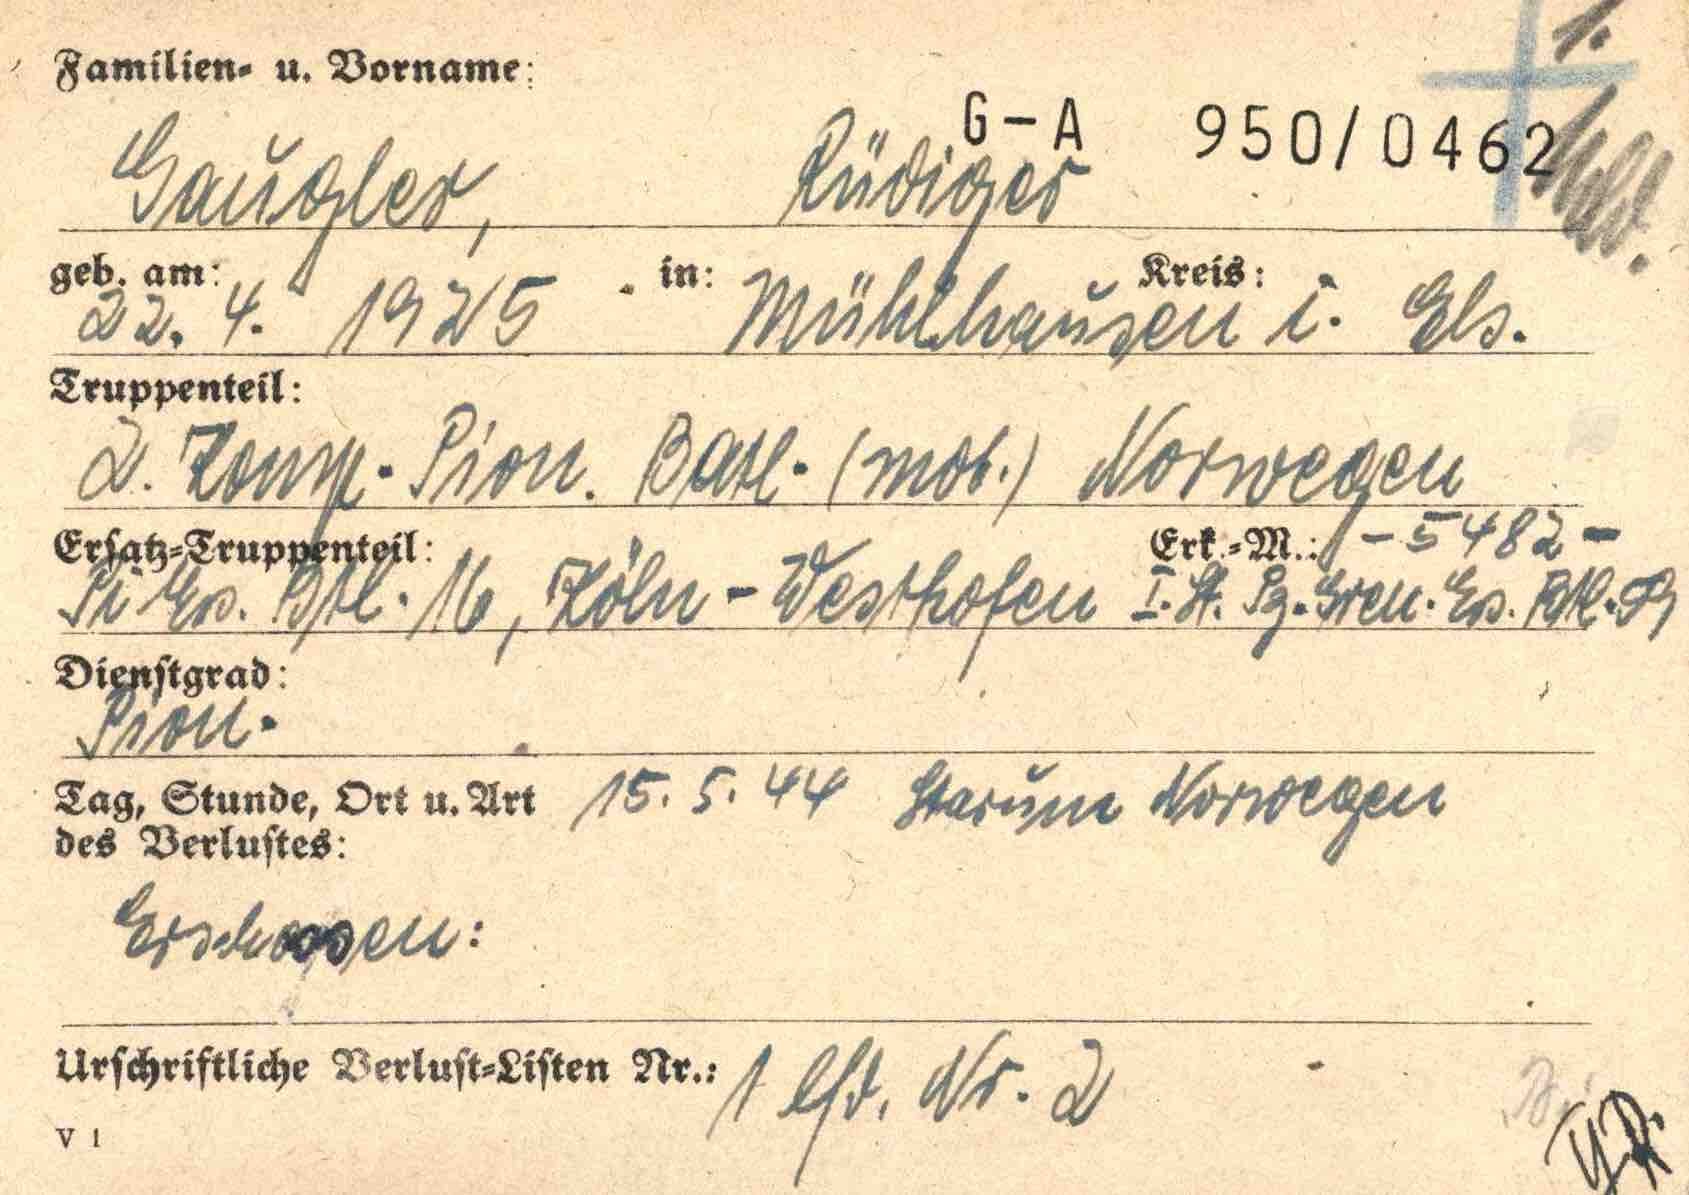 Familien- u. Vorname:
G-A 950/0462
Gaugler, Rüdiger
geb. am: in: Kreis:
22. 4. 1925 Mühlhausen i. Els.
Truppenteil:
2. Komp. Pion. Batl. (mot.) Norwegen
Ersatz-Truppenteil: Erk.-M.: -5482-
Pi Ers. Btl. 16, Köln-Westhofen I. St. Pz. Gren. Ers. Btl.
Dienstgrad:
Pion.
Tag, Stunde, Ort u. Art 15. 5. 44 Starum Norwegen
des Verlustes:
Erschossen:
Urschriftliche Verlust-Listen Nr.: 1 lfd. Nr. 2
V 1